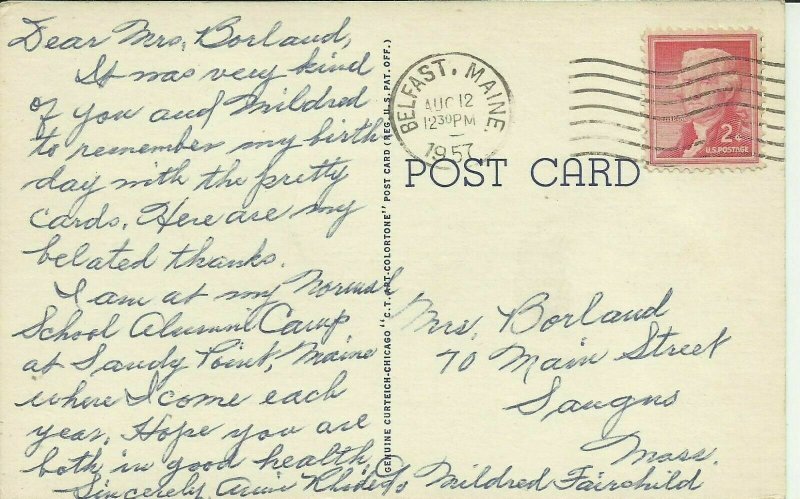 Dear Mrs. Borland,
It was very kind
of you and Mildred
to remember my birth
day with the pretty
cards. Here are my
belated thanks.
I am at my Normal
School Alumni Camp
at Sandy Point, Maine
where I come each
year. Hope you are
both in good health.
Sincerely,
(GENUINE CURTEICH-CHICAGO "C.T. ART-COLORTONE" POST CARD (REG. U.S. PAT. OFF.)
BELFAST, MAINE
AUG 12
12 30 PM
1957
2¢
U.S. POSTAGE
POST CARD
Mrs. Borland
70 Main Street
Saugus
Mass.
Mildred Fairchild